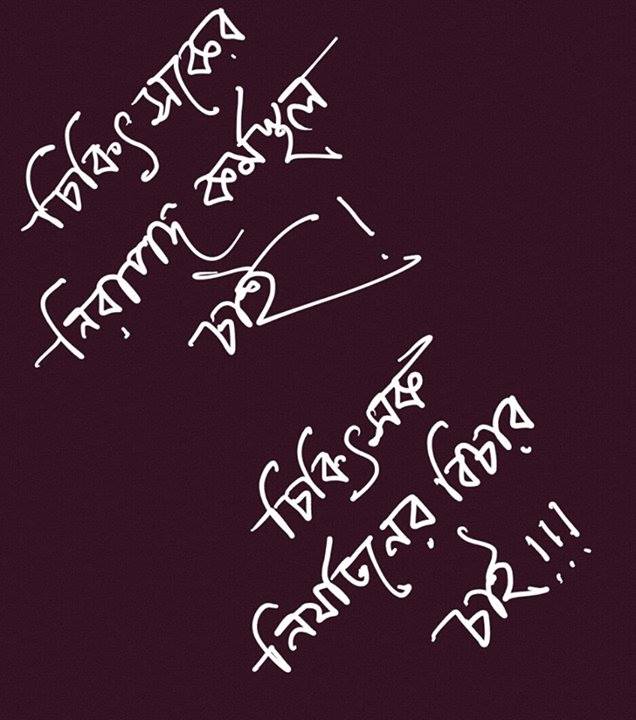 চিকিৎসকের
নিরাপদ কর্মস্থল
চাই!
চিকিৎসক
নির্যাতনের বিচার
চাই!!!